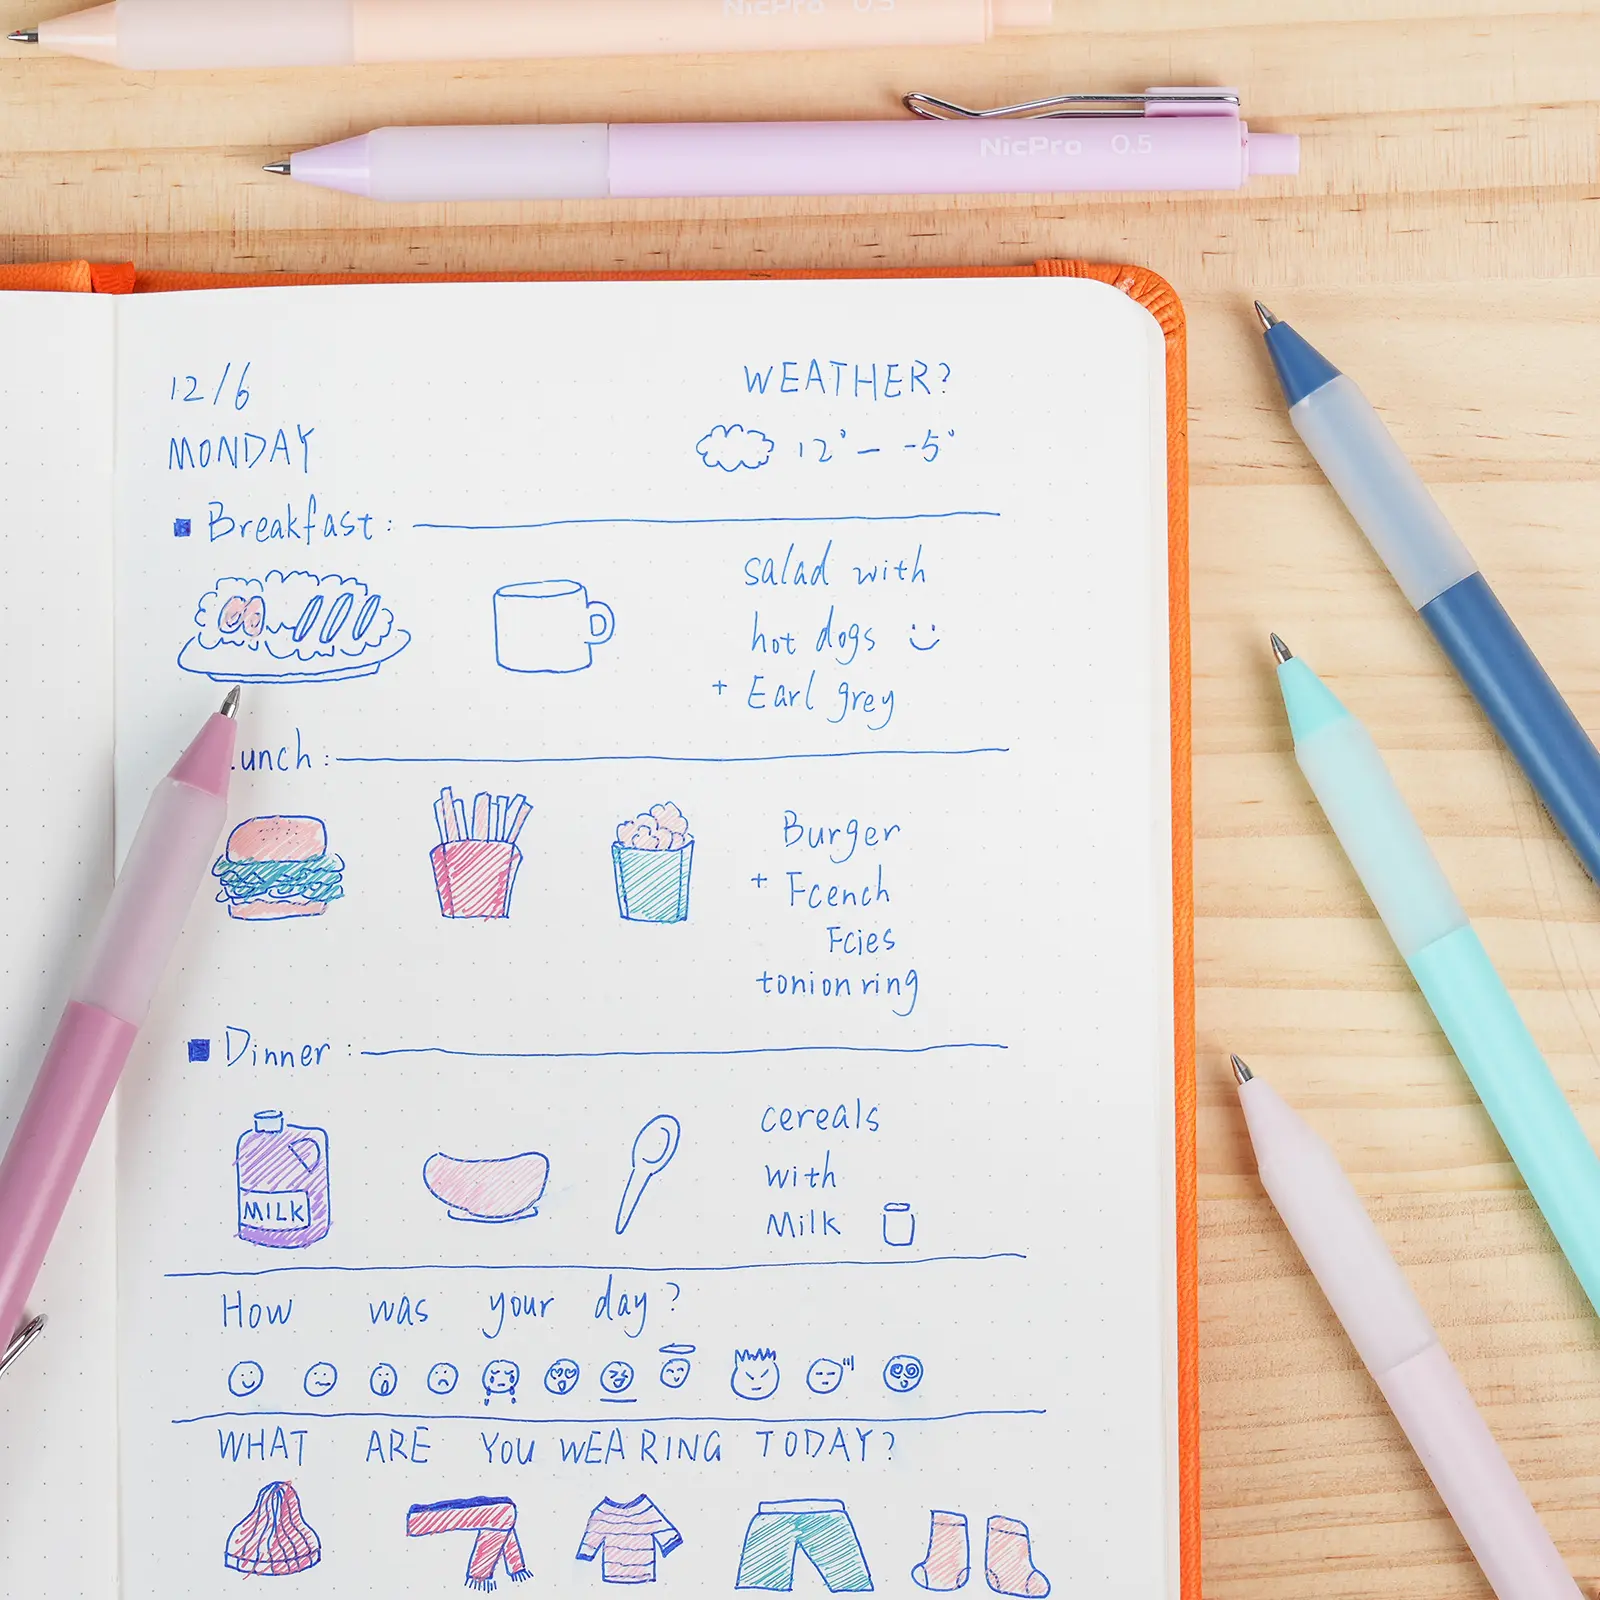 NicPro 0.5
NicPro 0.5
12/6
MONDAY
WEATHER?
12° – -5°
Breakfast:
salad with
hot dogs
+ Earl grey
unch:
Burger
+ Fcench
Fcies
tonion ring
Dinner:
MILK
cereals
with
Milk
How was your day?
WHAT ARE YOU WEARING TODAY?